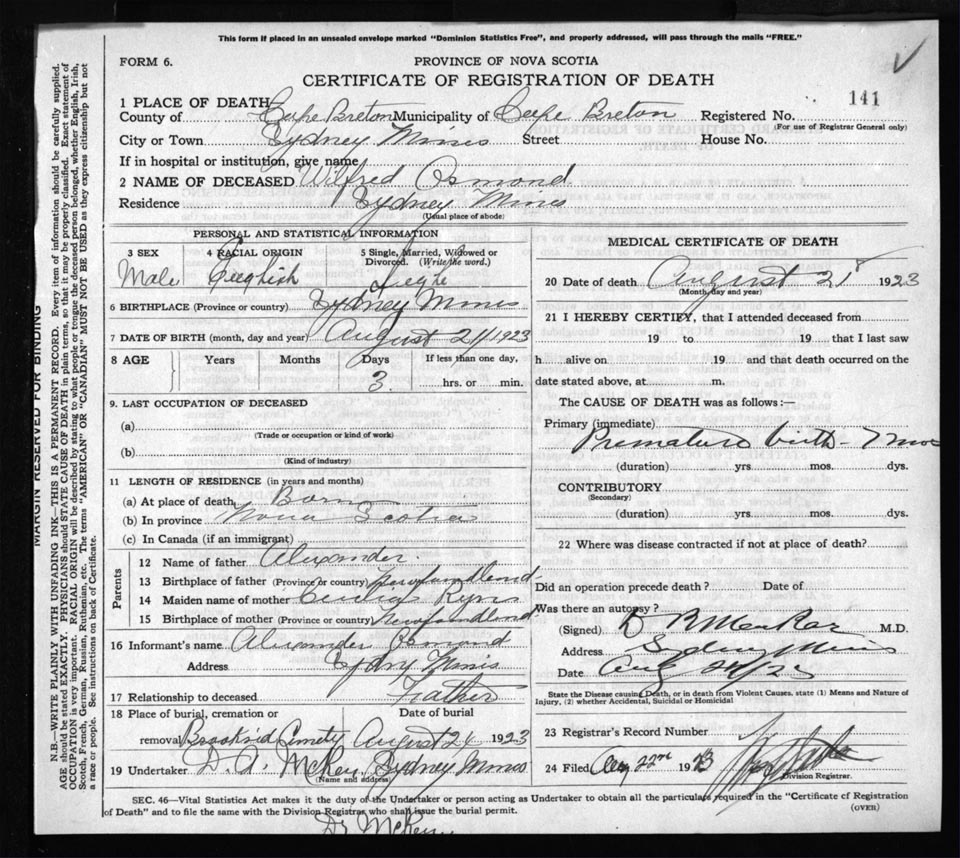 This form if placed in an unsealed envelope marked "Dominion Statistics Free", and properly addressed, will pass through the mails "FREE."
FORM 6.
PROVINCE OF NOVA SCOTIA
CERTIFICATE OF REGISTRATION OF DEATH
141
1 PLACE OF DEATH
County of Cape Breton Municipality of Cape Breton Registered No.
(For use of Registrar General only)
City or Town Sydney Mines Street House No.
If in hospital or institution, give name
2 NAME OF DECEASED Wilfred Osmond
Residence Sydney Mines
(Usual place of abode)
PERSONAL AND STATISTICAL INFORMATION
3 SEX 4 RACIAL ORIGIN 5 Single, Married, Widowed or Divorced. (Write the word.)
Male English Single
6 BIRTHPLACE (Province or country) Sydney Mines
7 DATE OF BIRTH (month, day and year) August 21 1923
8 AGE Years Months Days If less than one day,
3 hrs. or min.
9. LAST OCCUPATION OF DECEASED
(a)
(Trade or occupation or kind of work)
(b)
(Kind of industry)
11 LENGTH OF RESIDENCE (in years and months)
(a) At place of death Born
(b) In province Nova Scotia
(c) In Canada (if an immigrant)
Parents
12 Name of father Alexander
13 Birthplace of father (Province or country) Newfoundland
14 Maiden name of mother Cecilia
15 Birthplace of mother (Province or country) Newfoundland
16 Informant's name Alexander Osmond
Address Sydney Mines
17 Relationship to deceased Father
18 Place of burial, cremation or Date of burial
removal Brookside Cemetery August 21 1923
19 Undertaker D. A. McKay Sydney Mines
(Name and address)
MEDICAL CERTIFICATE OF DEATH
20 Date of death August 21 1923
(Month, day and year)
21 I HEREBY CERTIFY, that I attended deceased from
19 to 19 that I last saw
h alive on 19 and that death occurred on the
date stated above, at m.
The CAUSE OF DEATH was as follows:—
Primary (immediate)
Premature birth - 7 mos
(duration) yrs mos. dys.
CONTRIBUTORY
(Secondary)
(duration) yrs. mos. dys.
22 Where was disease contracted if not at place of death?
Did an operation precede death? Date of
Was there an autopsy?
(Signed) M.D.
Address Sydney Mines
Date Aug
State the Disease causing Death, or in death from Violent Causes, state (1) Means and Nature of
Injury, (2) whether Accidental, Suicidal or Homicidal
23 Registrar's Record Number
24 Filed Aug 22nd 1923
Division Registrar.
SEC. 46—Vital Statistics Act makes it the duty of the Undertaker or person acting as Undertaker to obtain all the particulars required in the "Certificate of Registration
of Death" and to file the same with the Division Registrar who shall issue the burial permit.
(OVER)
MARGIN RESERVED FOR BINDING
N.B.—WRITE PLAINLY WITH UNFADING INK—THIS IS A PERMANENT RECORD. Every item of information should be carefully supplied.
AGE should be stated EXACTLY. PHYSICIANS should STATE CAUSE OF DEATH in plain terms, so that it may be properly classified. Exact statement of
OCCUPATION is very important. RACIAL ORIGIN will be described by stating to what people or tongue the deceased person belonged, whether English, Irish,
Scotch, French, German, Russian, Ruthenian, etc. The terms "AMERICAN" OR "CANADIAN" MUST NOT BE USED as they express citizenship but not
a race or people. See instructions on back of Certificate.